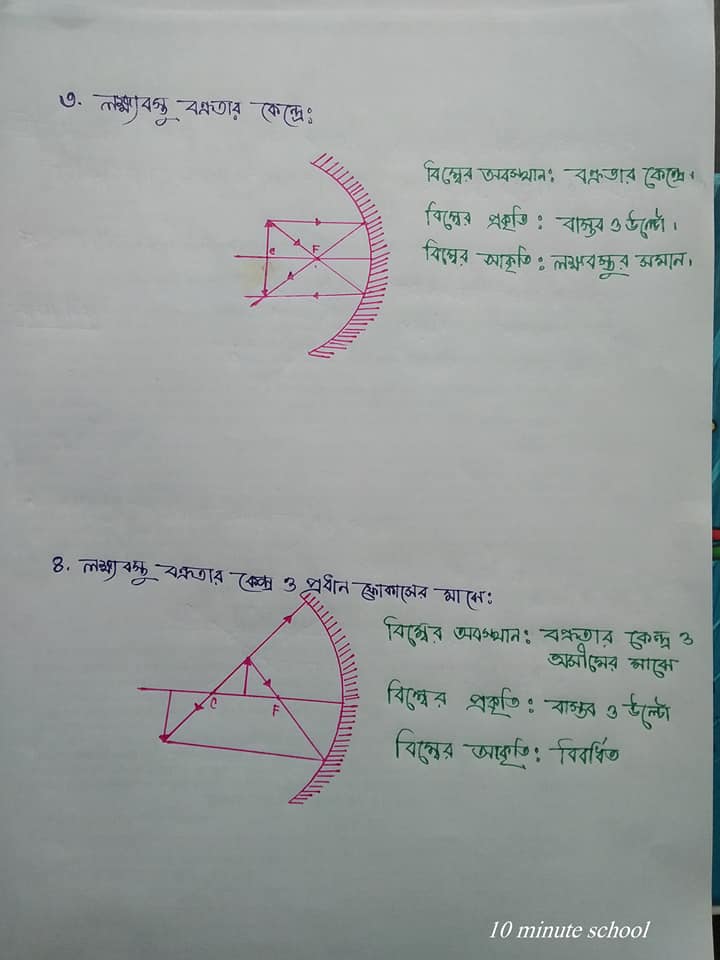 ৩. লক্ষ্যবস্তু বক্রতার কেন্দ্রে:
বিম্বের অবস্থান: বক্রতার কেন্দ্রে।
বিম্বের প্রকৃতি: বাস্তব ও উল্টো।
বিম্বের আকৃতি: লক্ষ্যবস্তুর সমান।
e F
৪. লক্ষ্যবস্তু বক্রতার কেন্দ্র ও প্রধান ফোকাসের মাঝে:
বিম্বের অবস্থান: বক্রতার কেন্দ্র ও
অসীমের মাঝে
বিম্বের প্রকৃতি: বাস্তব ও উল্টো
বিম্বের আকৃতি: বিবর্ধিত
C F
10 minute school